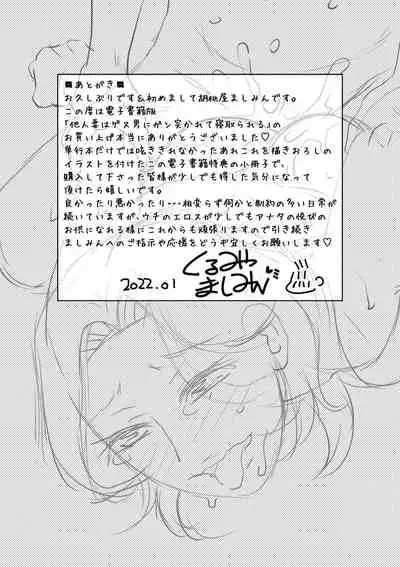 ■あとがき■
お久しぶりです&初めまして胡桃屋ましみんです。
この度は電子書籍版
「他人妻はゲス男にガン突かれて寝取られる」の
お買い上げ本当にありがとうございました♡
単行本だけでは吐ききれなかったあれこれを描きおろしの
イラストを付けたこの電子書籍特典の小冊子で、
購入して下さった皆様が少しでも得した気分になって
頂けたら嬉しいです。
良かったり悪かったり・・・相変らず何かと制約の多い日常が
続いていますが、ウチのエロスが少しでもアナタの悦びの
お供になれる様にこれからも頑張りますので引き続き
ましみんへのご指示や応援をどうぞ宜しくお願いします♡
くるみや
2022.01 ましみん